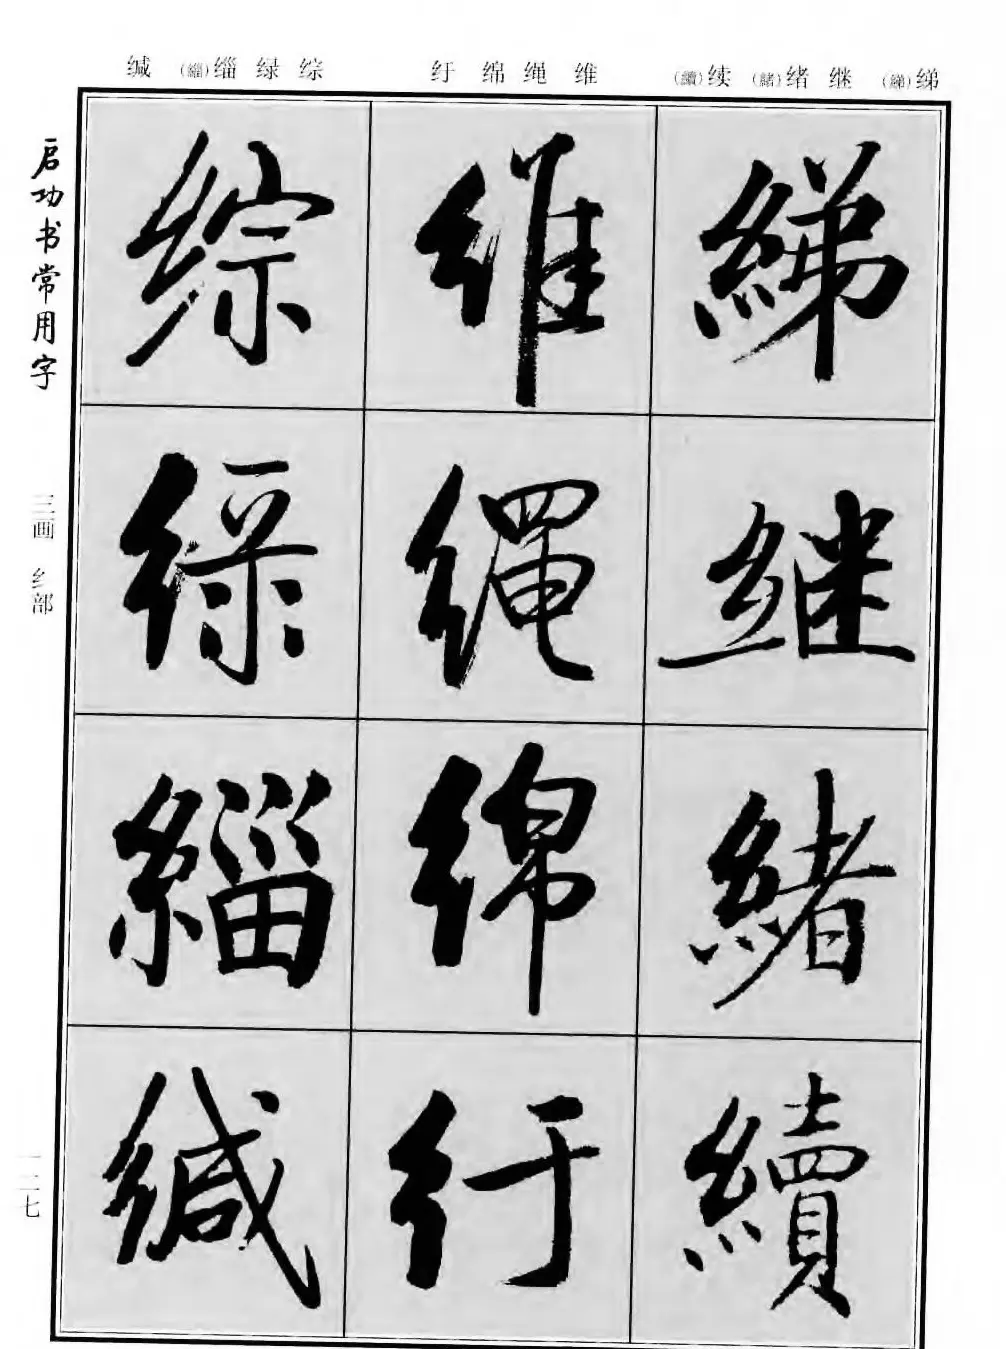 缄 (緇)缁 绿 综 纡 绵 绳 维 (續)续 (緒)绪 继 (綈)绨
启功书常用字
三画 纟部
一二七
綈
继
緒
續
维
绳
绵
纡
综
绿
緇
缄